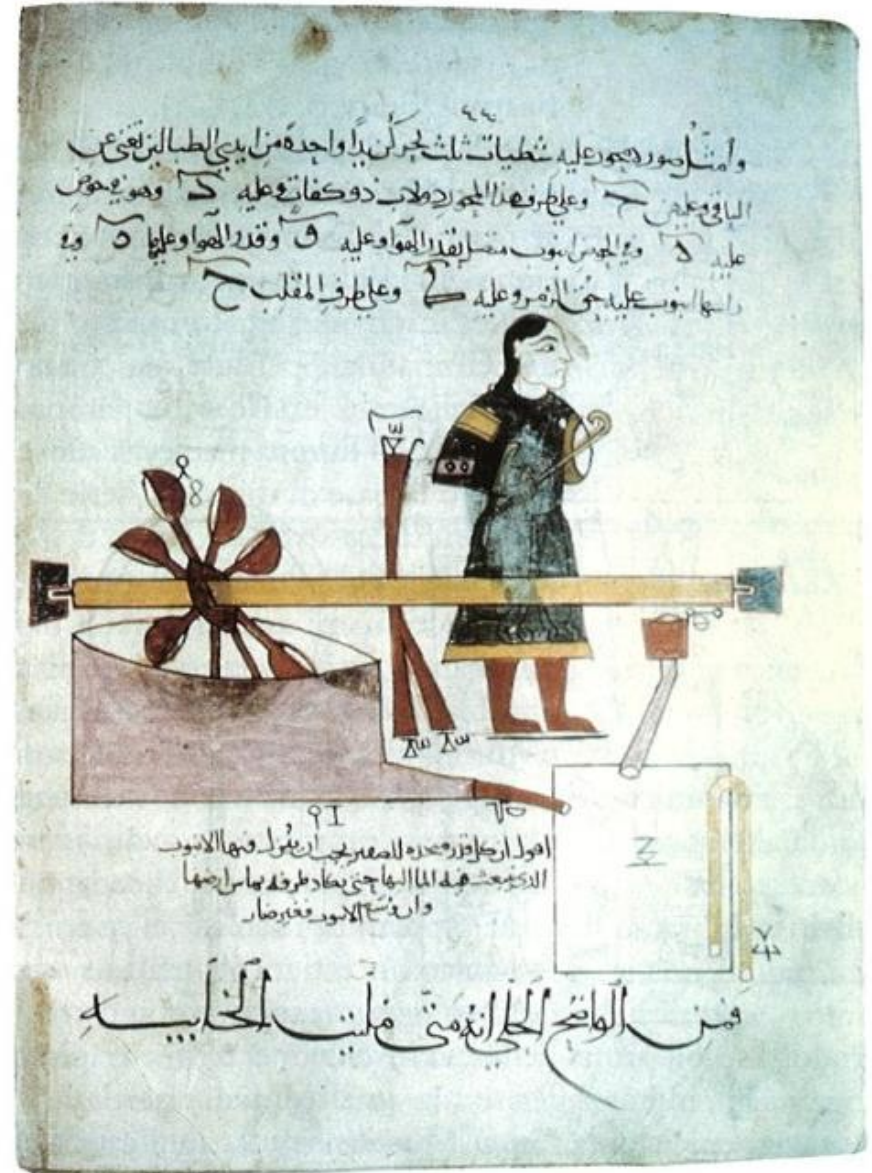 ٤٤
وأمثل صورة محور عليه شظيات ثلث لتحركن يدا واحدة من ايدي الطبالين تغنى عن
الباقي وعليهن ح وعلى طرف هذا المحور دولاب ذو كفات وعليه وهو في حوض
عليه د وفي الحوض انبوب متصل بقدر الهوا وعليه و وقدر الهوا وعليها ه وفي
راسها انبوب عليه حق الزمر وعليه وعلى طرف المقلب ح
اقول ان كل قدر متخذة للصفير يجب ان ينزل فيها الانبوب
الذي ينبعث فيه الما اليها حتى يكاد طرفه يماس ارضها
وان وسع الانبوب فغير ضار
فمن الواضح الجلي انه متى ملئت الخابيه